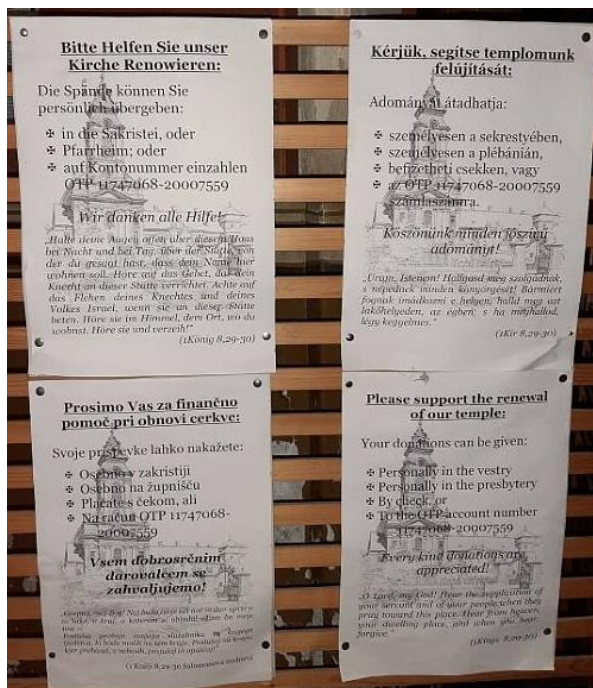 Bitte Helfen Sie unser
Kirche Renowieren:
Die Spände können Sie
persönlich übergeben:
✠ in die Sakristei, oder
✠ Pfarrheim; oder
✠ auf Kontonummer einzahlen
OTP 11747068-20007559
Wir danken alle Hilfe!
„Halte deine Augen offen über diesem Haus
bei Nacht und bei Tag, über der Stätte, von
der du gesagt hast, dass dein Name hier
wohnen soll. Höre auf das Gebet, das dein
Knecht an dieser Stätte verrichtet. Achte auf
das Flehen deines Knechtes und deines
Volkes Israel, wenn sie an dieser Stätte
beten. Höre sie im Himmel, dem Ort, wo du
wohnst. Höre sie und verzeih!"
(1König 8,29-30)
Kérjük, segítse templomunk
felújítását:
Adományát átadhatja:
✠ személyesen a sekrestyében,
✠ személyesen a plébánián,
✠ befizetheti csekken, vagy
✠ az OTP 11747068-20007559
számlaszámra.
Köszönünk minden jószívű
adományt!
„Uram, Istenem! Hallgasd meg szolgádnak,
s népednek minden könyörgését! Bármiért
fognak imádkozni e helyen, halld meg azt
lakóhelyeden, az égben, s ha meghallod,
légy kegyelmes."
(1Kir 8,29-30)
Prosimo Vas za finančno
pomoč pri obnovi cerkve:
Svoje prispevke lahko nakažete:
✠ Osebno v zakristiji
✠ Osebno na župnišču
✠ Plačate s čekom, ali
✠ Na račun OTP 11747068-
20007559
Vsem dobrosrčnim
darovalcem se
zahvaljujemo!
(1 Kralji 8,29-30 Salomonova molitev)
Please support the renewal
of our temple:
Your donations can be given:
✠ Personally in the vestry
✠ Personally in the presbytery
✠ By check, or
✠ To the OTP account number
11747068-20007559
Every kind donations are
appreciated!
„O Lord, my God! Hear the supplication of
your servant and of your people when they
pray toward this place. Hear from heaven,
your dwelling place, and when you hear,
forgive."
(1Kings 8,29-30)